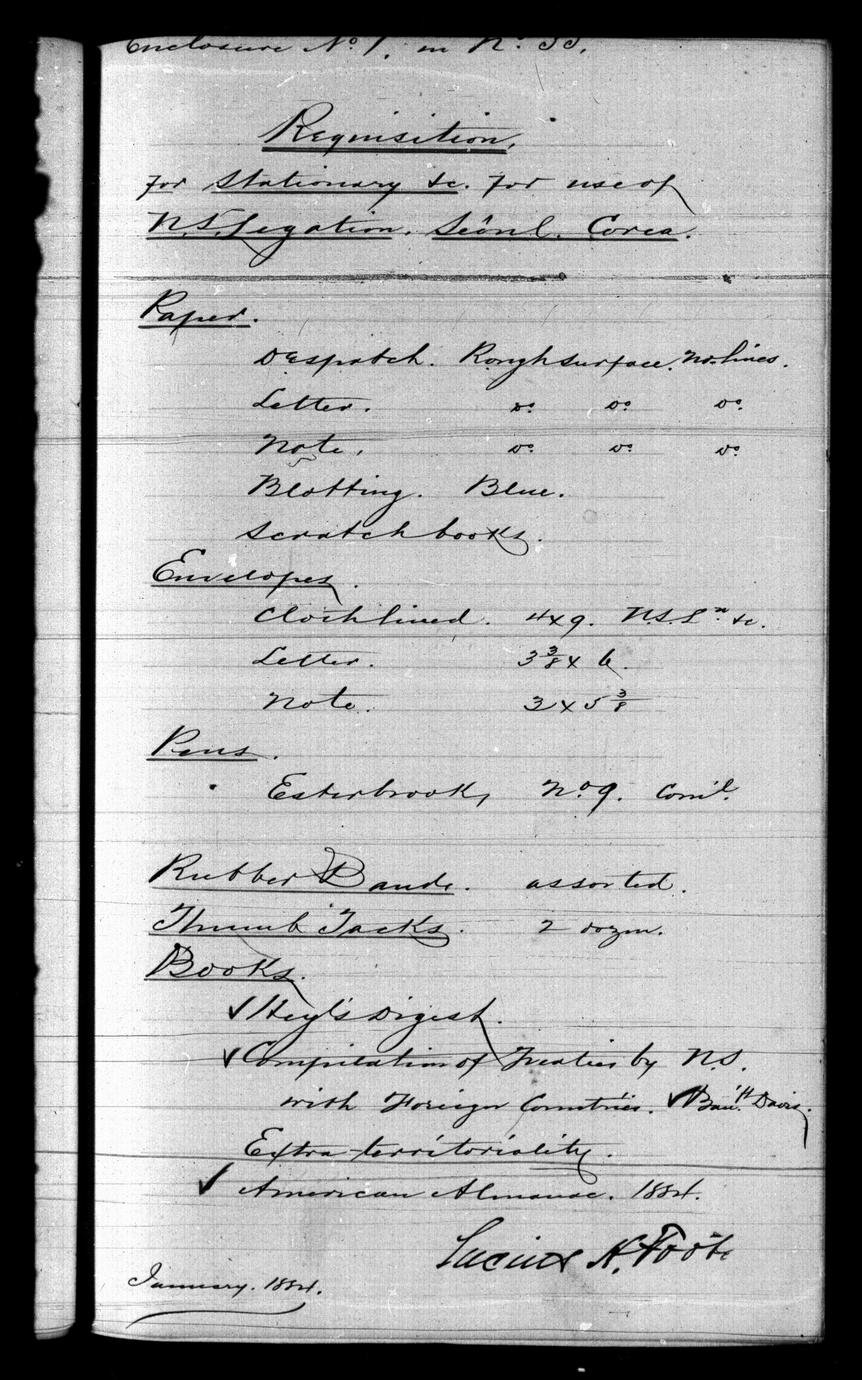 Enclosure No 1, in No. 53.
Requisition,
for Stationary &c. for use of
U.S. Legation. Seôul. Corea.
Paper.
Despatch. Rough surface. No. lines.
Letter. Do. Do. Do.
Note. Do. Do. Do.
Blotting. Blue.
Scratch books.
Envelopes.
Cloth lined. 4x9. U.S. Ln &c.
Letter. 3 3/8 x 6.
Note. 3 x 5 3/8
Pens.
Esterbrook, No 9. Coml.
Rubber Bands. assorted.
Thumb Tacks. 2 dozen.
Books.
✓ Heyl's Digest.
✓ Compilation of Treaties by U.S.
with Foreign Countries. ✓ Davis.
Extra-territoriality.
✓ American Almanac. 1884.
Lucius H. Foote
January. 1884.